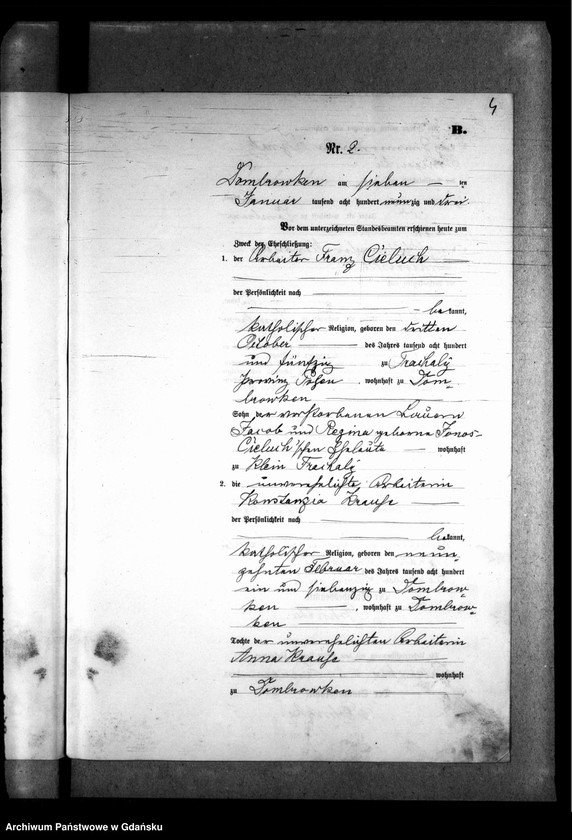 4
B.
Nr. 2.
Dombrowken am sieben ten
Januar tausend acht hundert neunzig und drei.
Vor dem unterzeichneten Standesbeamten erschienen heute zum
Zweck der Eheschließung:
1. der Arbeiter Franz Cieluch
der Persönlichkeit nach
bekannt,
katholischer Religion, geboren den dritten
October des Jahres tausend acht hundert
und fünfzig zu
Provinz Posen, wohnhaft zu Dom-
browken
Sohn der verstorbenen Bauern
Jacob und Regina geborne
Cieluch'schen Eheleute wohnhaft
zu Klein
2. die unverehelichte Arbeiterin
Konstanzia Krause
der Persönlichkeit nach
bekannt,
katholischer Religion, geboren den neun-
zehnten Februar des Jahres tausend acht hundert
ein und siebenzig zu Dombrow-
ken, wohnhaft zu Dombrow-
ken
Tochter der unverehelichten Arbeiterin
Anna Krause
wohnhaft
zu Dombrowken
Archiwum Państwowe w Gdańsku